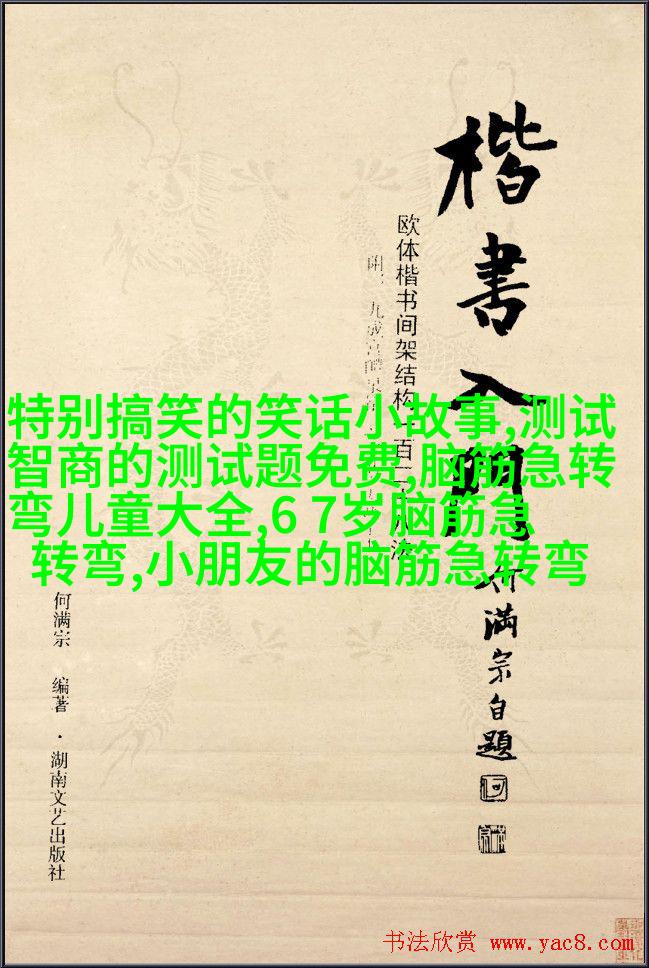 楷書入門
何满宗自題
欧体楷书间架结构一百二十八法
特别搞笑的笑话小故事,测试
智商的测试题免费,脑筋急转
弯儿童大全,6 7岁脑筋急
转弯,小朋友的脑筋急转弯
何满宗 编著·湖南文艺出版社
书法欣赏 www.yac8.com